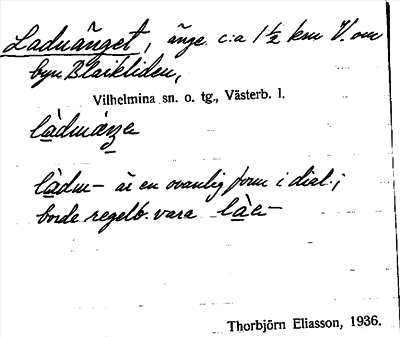 Laduänget, änge c:a 1½ km V. om
byn Blaikliden,
Vilhelmina sn. o. tg., Västerb. l.
làdm- är en ovanlig form i dial.;
borde regelb. vara là-
Thorbjörn Eliasson, 1936.